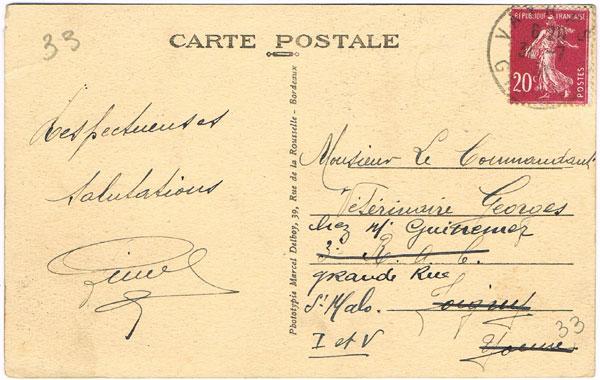 33
CARTE POSTALE
RÉPUBLIQUE FRANÇAISE
20c
POSTES
Respectueuses
salutations
Phototypie Marcel Delboy, 39, Rue de la Rousselle - Bordeaux
Monsieur Le Commandant
Vétérinaire Georges
chez Mr Guinemer
3e R. A. C.
grande Rue
St Malo. Joigny
I et V Yonne
33